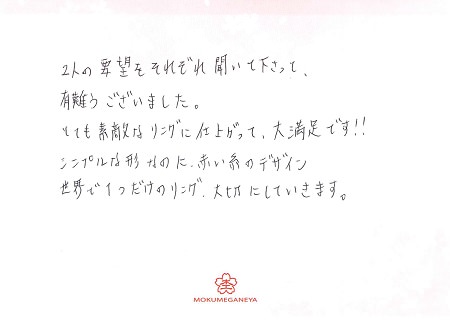 2人の要望をそれぞれ聞いて下さって、
有難うございました。
とても素敵なリングに仕上がって、大満足です!!
シンプルな形なのに、赤い糸のデザイン
世界で1つだけのリング、大切にしていきます。
MOKUMEGANEYA